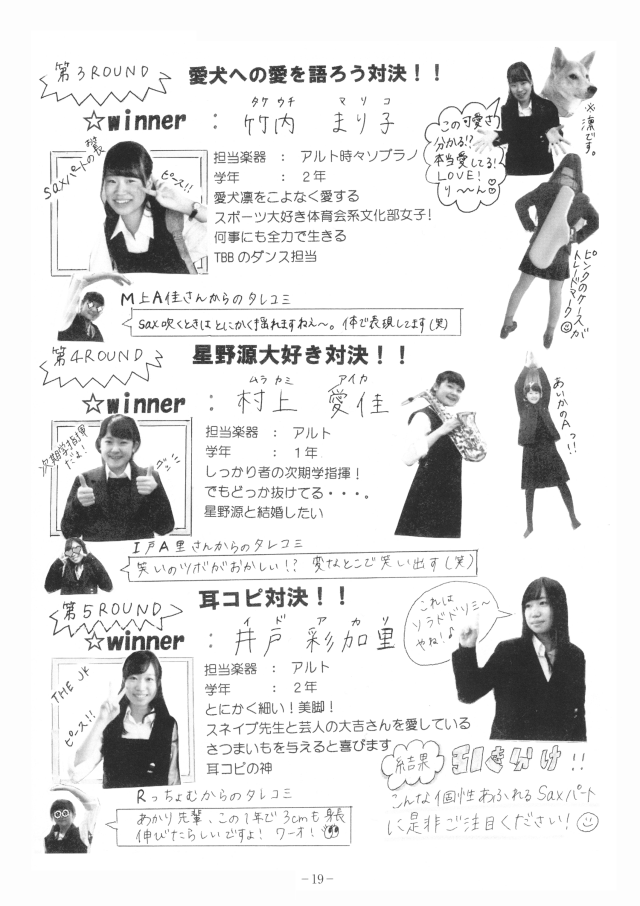 第3ROUND
愛犬への愛を語ろう対決！！
タケウチ マリコ
☆winner ： 竹内 まり子
saxパートの長
ピース!!
担当楽器 ： アルト時々ソプラノ
学年 ： 2年
愛犬凛をこよなく愛する
スポーツ大好き体育会系文化部女子！
何事にも全力で生きる
TBBのダンス担当
この可愛さ
分かる!?
本当愛してる!
LOVE!
り〜〜ん♡
※凛です。
ピンクのケースが
トレードマーク☺
M上A佳さんからのタレコミ
sax吹くときはとにかく揺れますねぇ〜。体で表現してます(笑)
第4ROUND
星野源大好き対決！！
ムラカミ アイカ
☆winner ： 村上 愛佳
次期学指揮
だよ!
グッ
担当楽器 ： アルト
学年 ： 1年
しっかり者の次期学指揮！
でもどっか抜けてる・・・。
星野源と結婚したい
あいかのAっ!!
I戸A里さんからのタレコミ
笑いのツボがおかしい!? 変なとこで笑い出す(笑)
第5ROUND
耳コピ対決！！
イド アカリ
☆winner ： 井戸 彩加里
THE JK
ピース!!
担当楽器 ： アルト
学年 ： 2年
とにかく細い！美脚！
スネイプ先生と芸人の大吉さんを愛している
さつまいもを与えると喜びます
耳コピの神
これは
ソラドドソミ〜
やね!♪
Rっちょむからのタレコミ
あかり先輩、この1年で3cmも身長
伸びたらしいですよ! ワーオ!
結果 引き分け!!
こんな個性あふれるSaxパート
に是非ご注目ください!☺
−19−